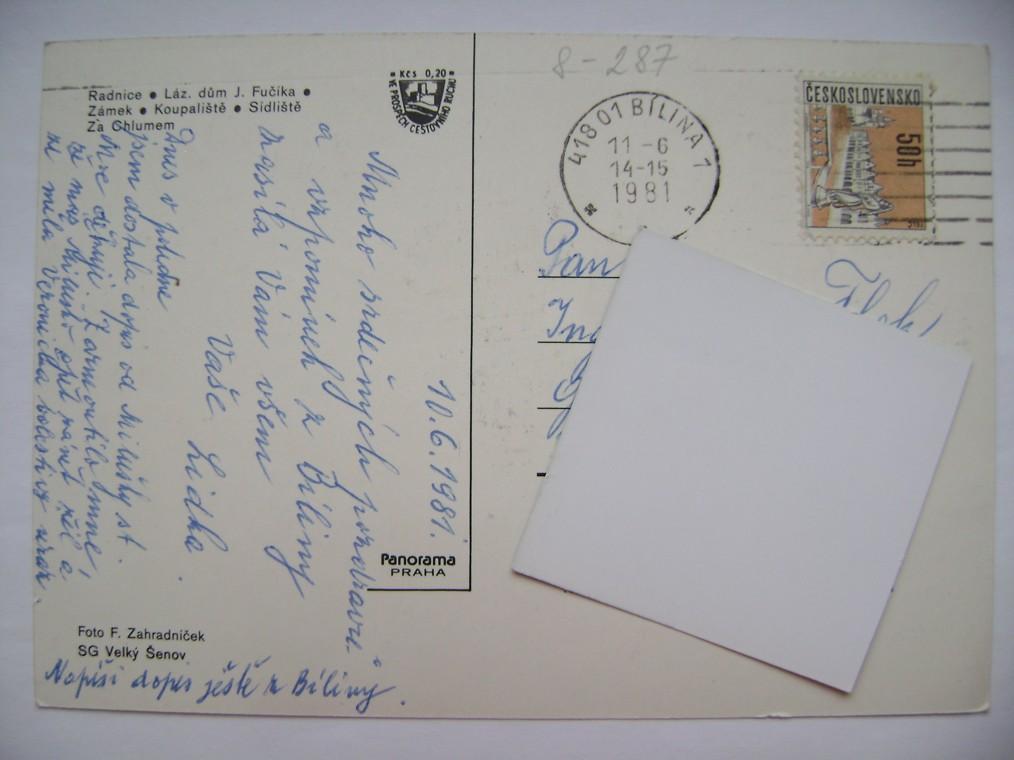 8-287
Radnice • Láz. dům J. Fučíka •
Zámek • Koupaliště • Sídliště
Za Chlumem
Kčs 0,20
VE PROSPĚCH CESTOVNÍHO RUCHU
418 01 BÍLINA 1
11-6
14-15
1981
ČESKOSLOVENSKO
50h
10.6.1981.
Mnoho srdečných pozdravů
a vzpomínek z Bíliny
zasílá Vám všem
Vaše Lidka
Dnes v poledne
jsem dostala dopis od Milušky st.
Zarmoutilo mne,
že mas
opět zánět žil a
milá Veronika bolesti
Napíši dopis ještě z Bíliny.
Pan
Panorama
PRAHA
Foto F. Zahradníček
SG Velký Šenov